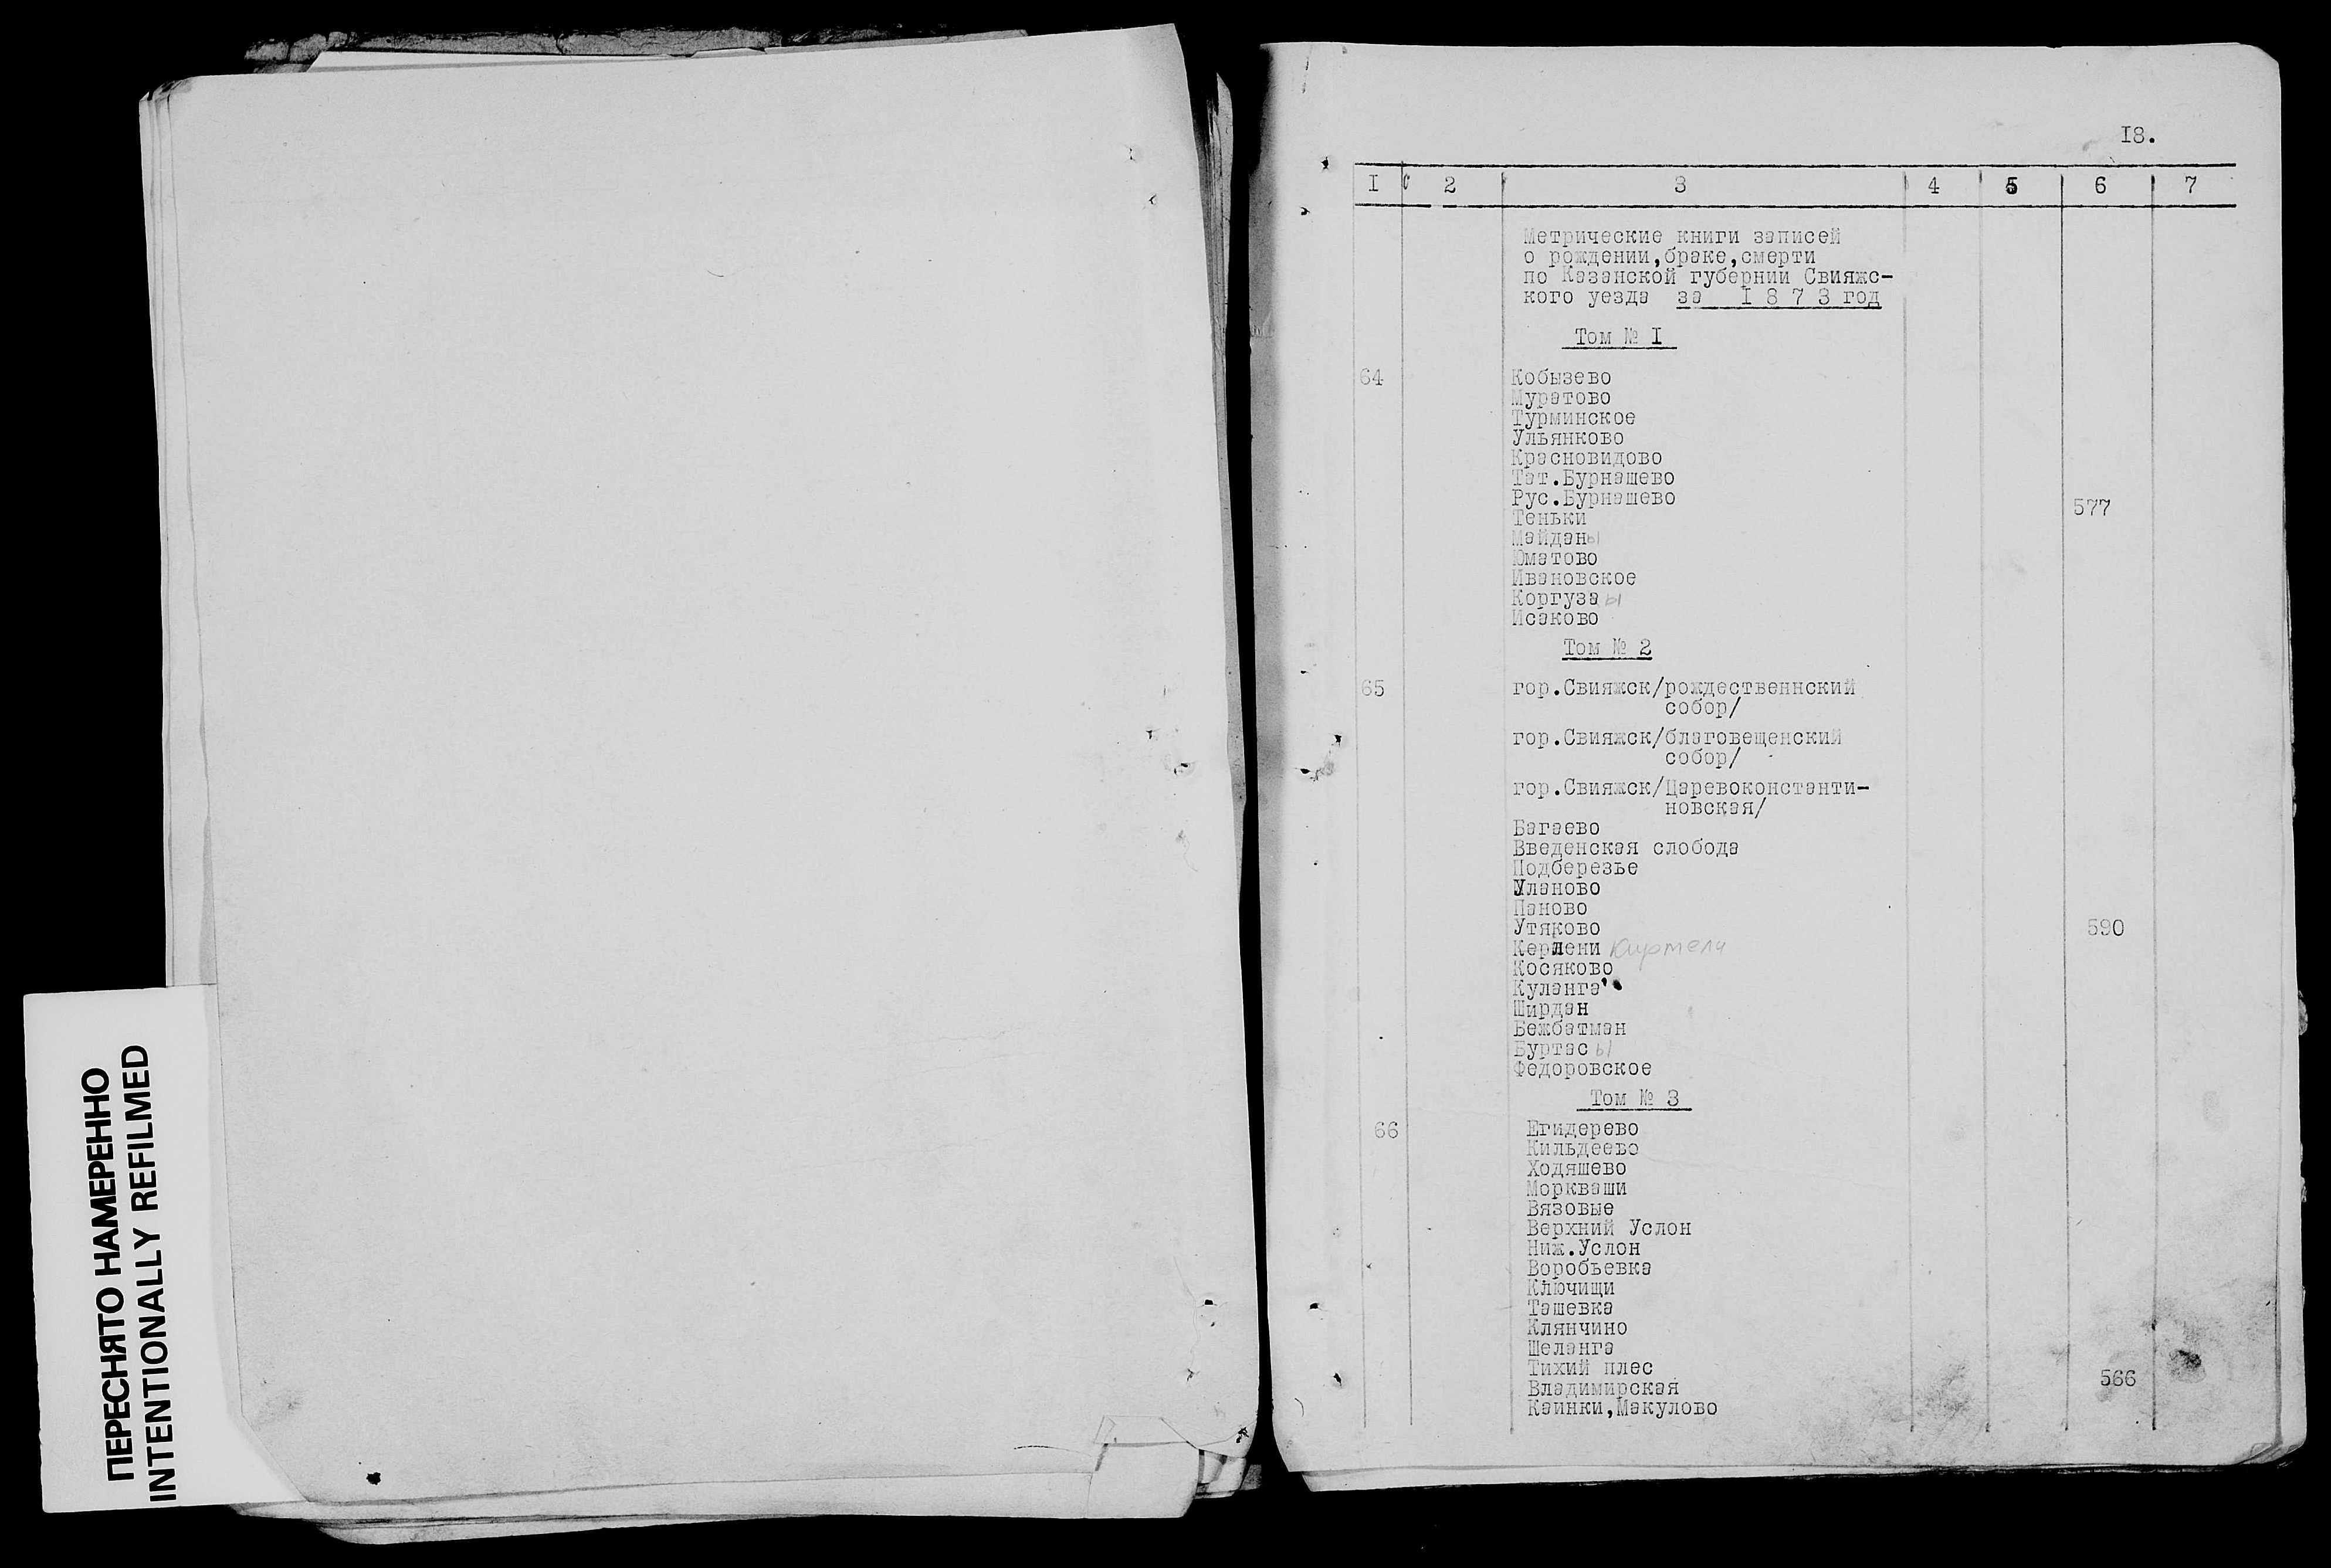 ПЕРЕСНЯТО НАМЕРЕННО
INTENTIONALLY REFILMED
I8.
I 2 3 4 5 6 7
Метрические книги записей
о рождении,браке,смерти
по Казанской губернии Свияжс-
кого уезда за I 8 7 3 год
Том № I
64 Кобызево
Муратово
Турминское
Ульянково
Красновидово
Тат.Бурнашево
Рус.Бурнашево
577
Теньки
Майданы
Юматово
Ивановское
Коргуза ы
Исаково
Том № 2
65 гор.Свияжск/рождественнский
собор/
гор.Свияжск/благовещенский
собор/
гор.Свияжск/Царевоконстанти-
новская/
Багаево
Введенская слобода
Подберезье
Уланово
Паново
Утяково 590
Керлени Киртели
Косяково
Куланга
Ширдан
Бежбатман
Буртас ы
Федоровское
Том № 3
66 Егидерево
Кильдеево
Ходяшево
Моркваши
Вязовые
Верхний Услон
Ниж.Услон
Воробьевка
Ключищи
Ташевка
Клянчино
Шеланга
Тихий плес
566
Владимирская
Каинки,Макулово